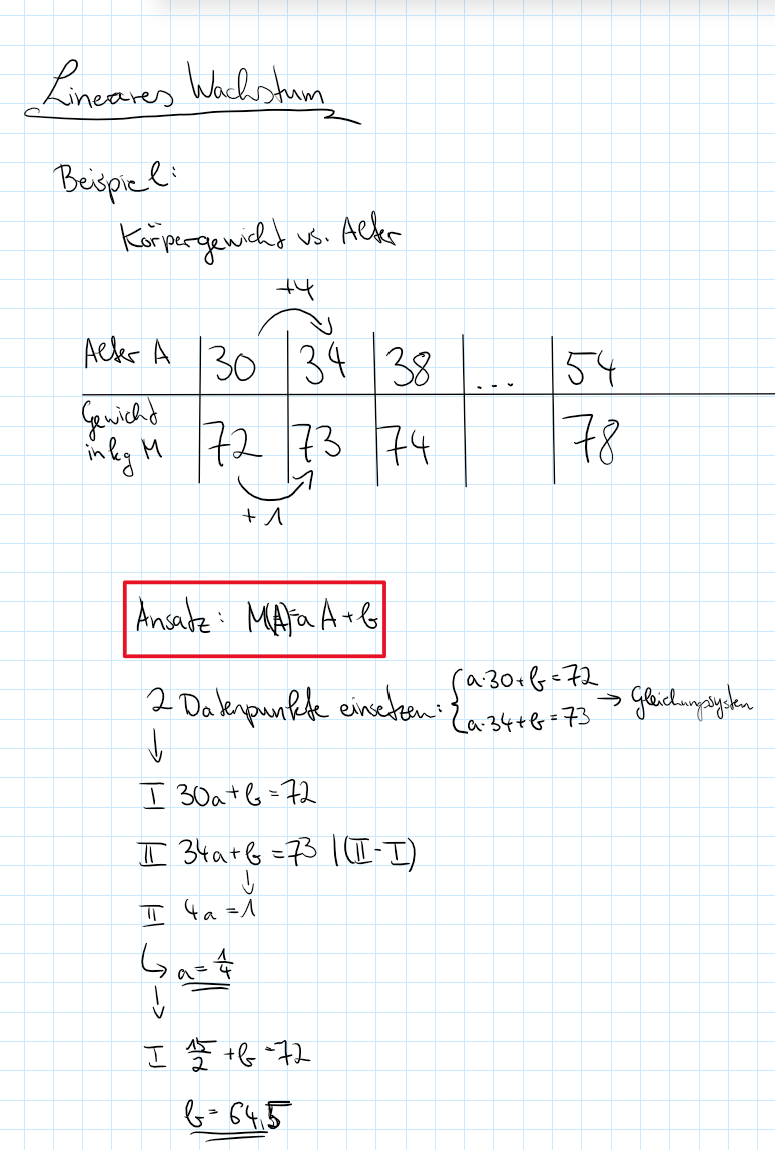 Lineares Wachstum
Beispiel:
Körpergewicht vs. Alter
+4
Alter A | 30 | 34 | 38 | ... | 54
Gewicht in kg M | 72 | 73 | 74 | | 78
+1
Ansatz: M(A)=a A+b
2 Datenpunkte einsetzen: { a·30+b=72
a·34+b=73 → Gleichungssystem
↓
I 30a+b=72
II 34a+b=73 |(II-I)
↓
II 4a=1
↳ a=1/4
↓
I 15/2+b=72
b=64,5